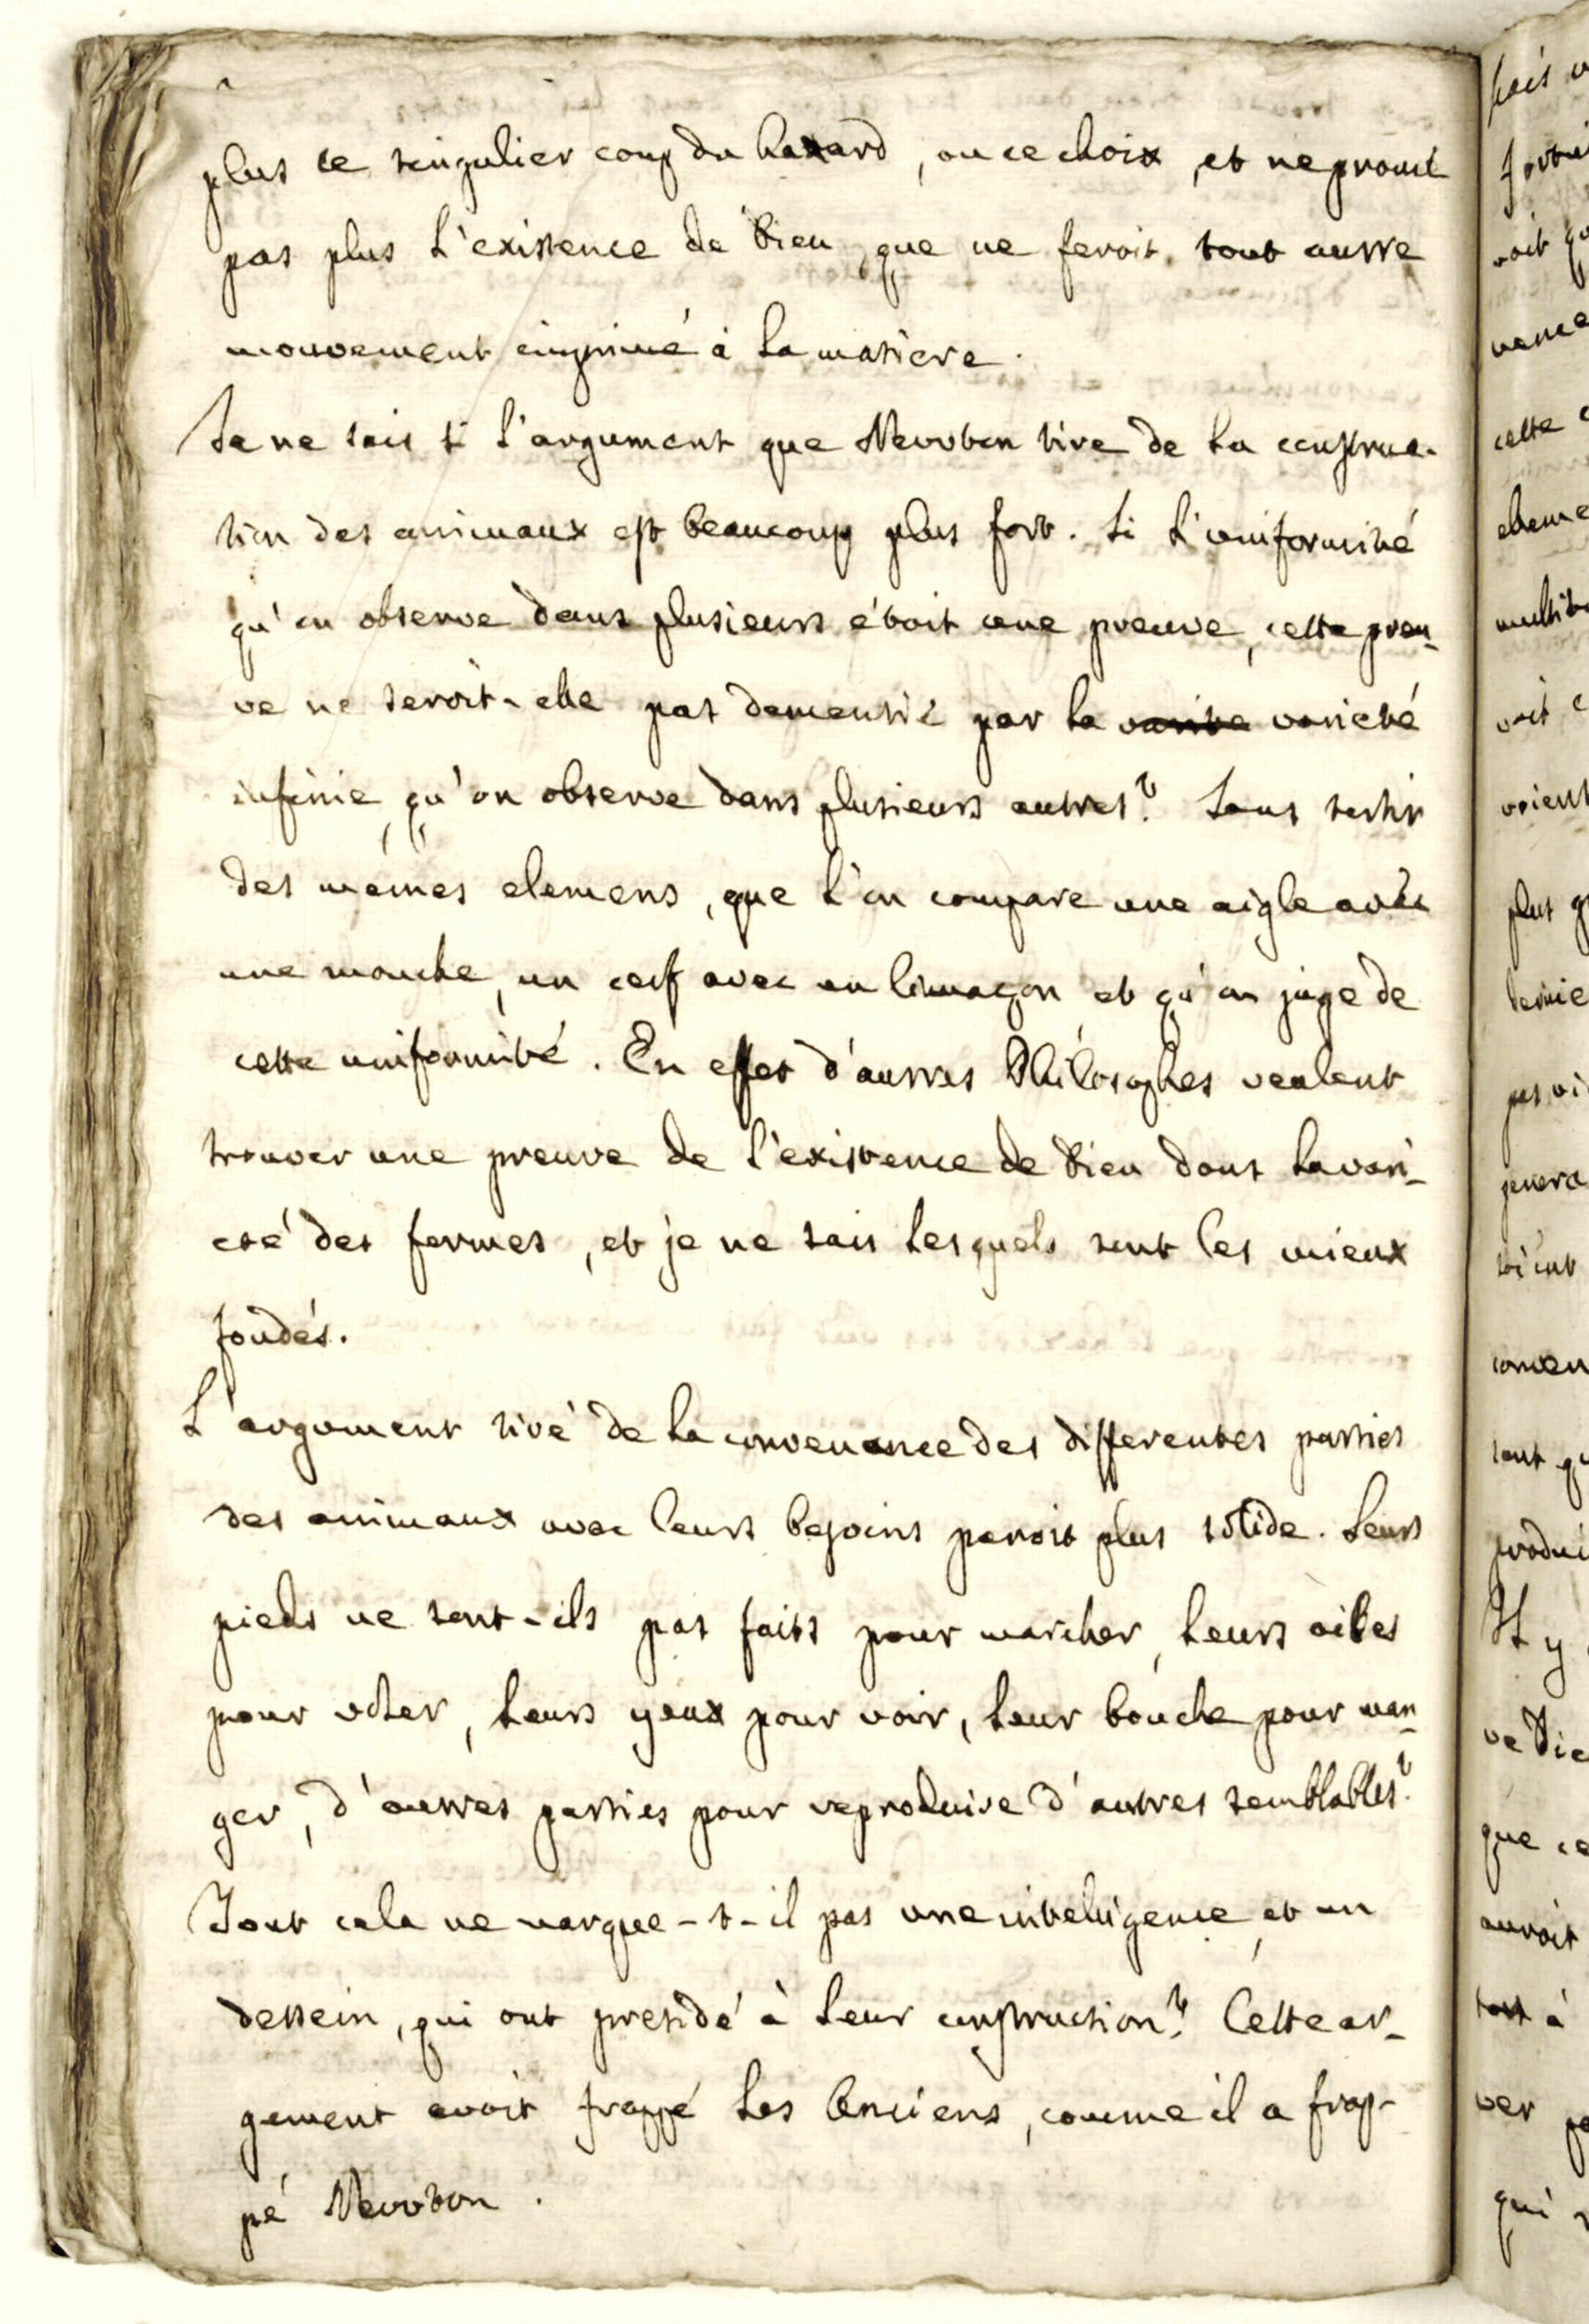 plus ce singulier coup du hazard, ou ce choix, et ne prouve
pas plus l'existence de Dieu, que ne feroit tout autre
mouvement imprimé à la matiere.
Je ne sais si l'argument que Newton tire de la construc-
tion des animaux est beaucoup plus fort. Si l'uniformité
qu'on observe dans plusieurs étoit une preuve, cette preu-
ve ne seroit-elle pas dementie par la varieté
infinie qu'on observe dans plusieurs autres? Sans sortir
des mêmes elemens, que l'on compare une aigle avec
une mouche, un cerf avec un limaçon et qu'on juge de
cette uniformité. En effet d'autres Philosophes veulent
trouver une preuve de l'existence de Dieu dans la vari-
eté des formes, et je ne sais lesquels sont les mieux
fondés.
L'argument tiré de la convenance des differentes parties
des animaux avec leurs besoins paroit plus solide. Leurs
pieds ne sont-ils pas faits pour marcher, leurs ailes
pour voler, leurs yeux pour voir, leur bouche pour man-
ger, d'autres parties pour reproduire d'autres semblables?
Tout cela ne marque-t-il pas une intelligence et un
dessein, qui ont presidé à leur construction? Cette ar-
gument avoit frappé les Anciens, comme il a frap-
pé Newton.